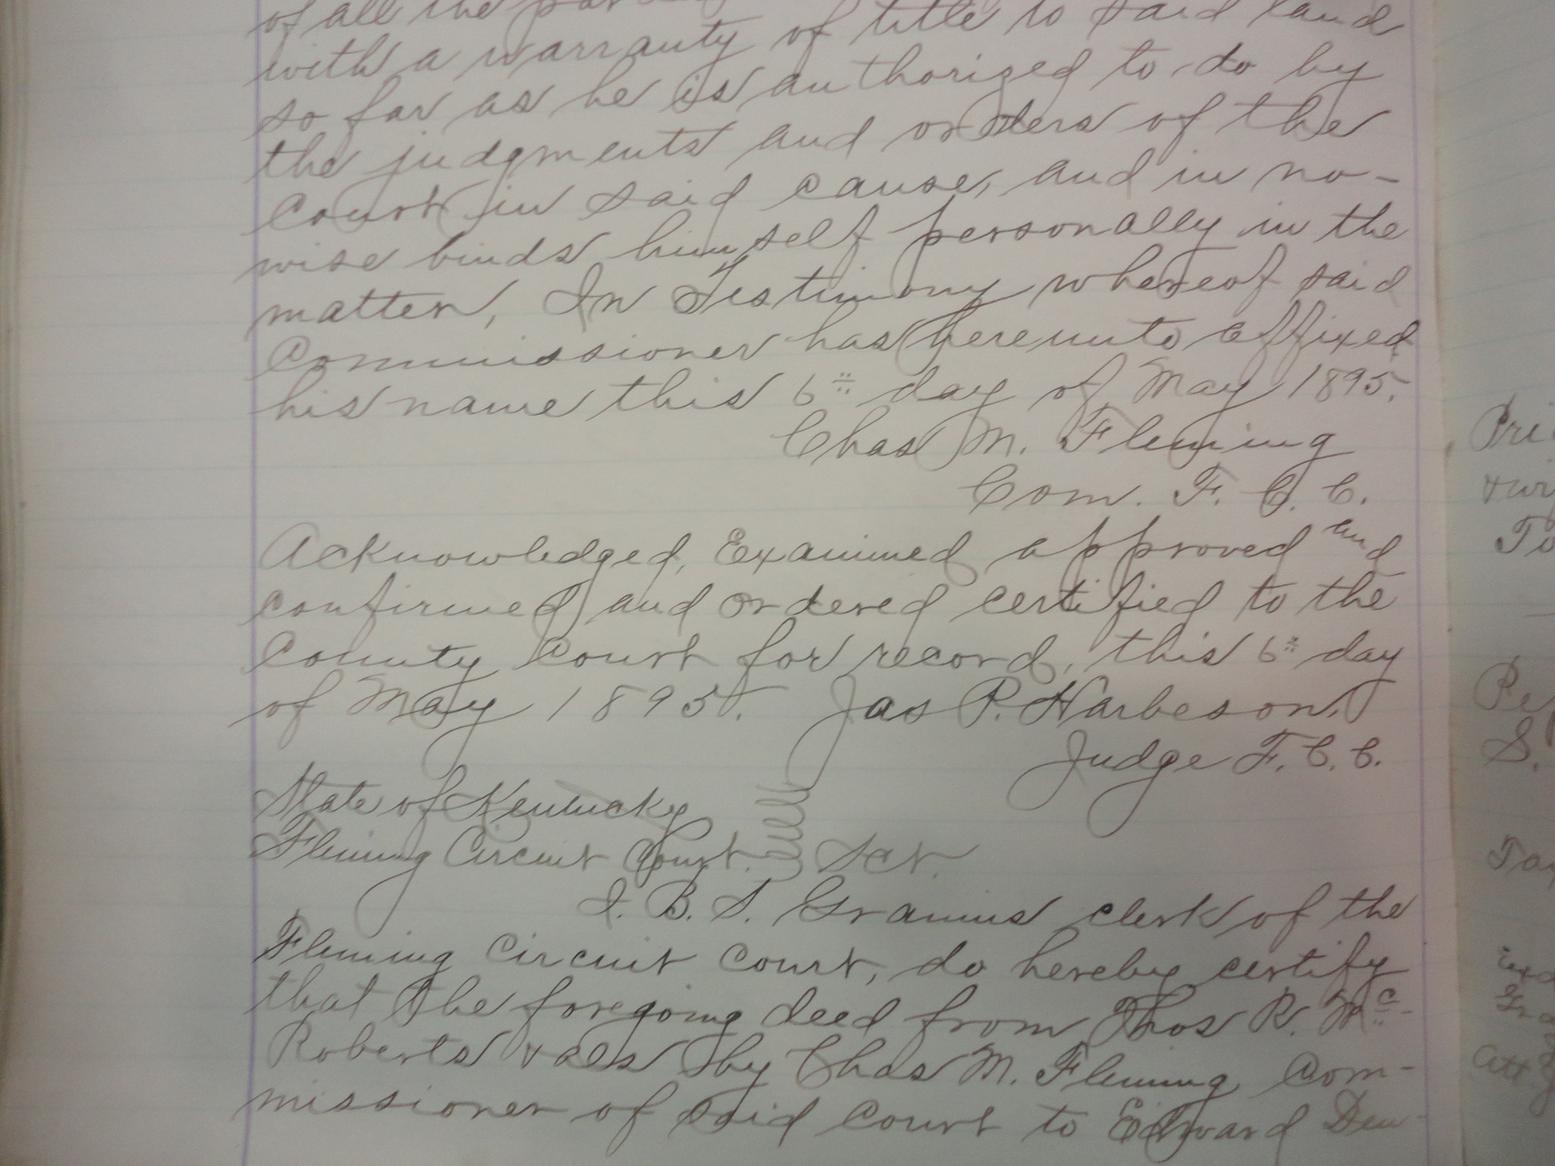 of all the
with a warranty of title to said land
so far as he is authorized to do by
the judgments and orders of the
Court in said cause, and in no-
wise binds himself personally in the
matter, In Testimony whereof said
Commissioner has hereunto affixed
his name this 6th day of May 1895.
Chas M. Fleming
Com. F. C. C.
Acknowledged, Examined approved and
confirmed and ordered certified to the
County Court for record, this 6th day
of May 1895. Jas P. Harbeson,
Judge F. C. C.
State of Kentucky
Fleming Circuit Court. Sct.
I. B. S. Grannis clerk of the
Fleming Circuit Court, do hereby certify
that the foregoing deed from Thos R. Mc
Roberts &als by Chas M. Fleming Com-
missioner of said Court to Edward